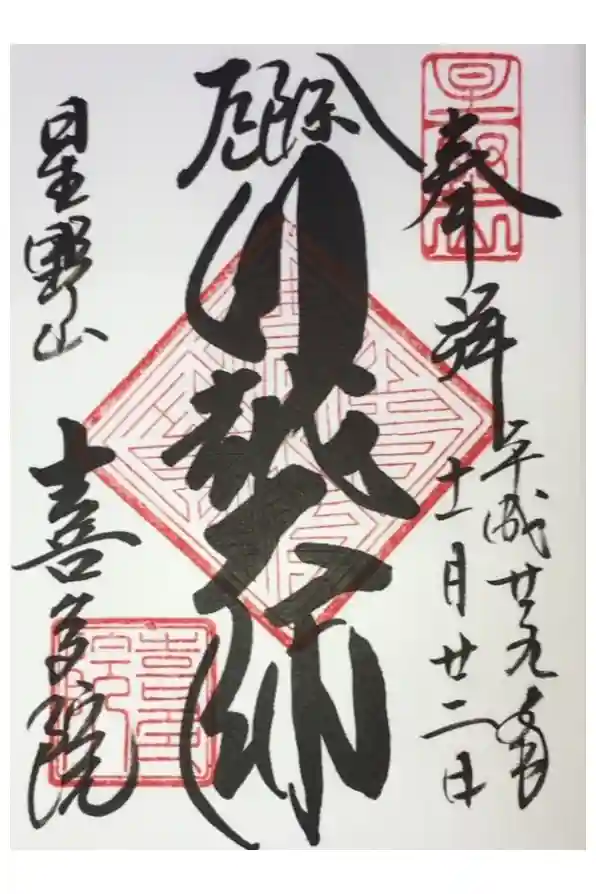 奉拝
平成廿九
十一月廿二日
厄除
川越大師
星野山
喜多院
喜多院